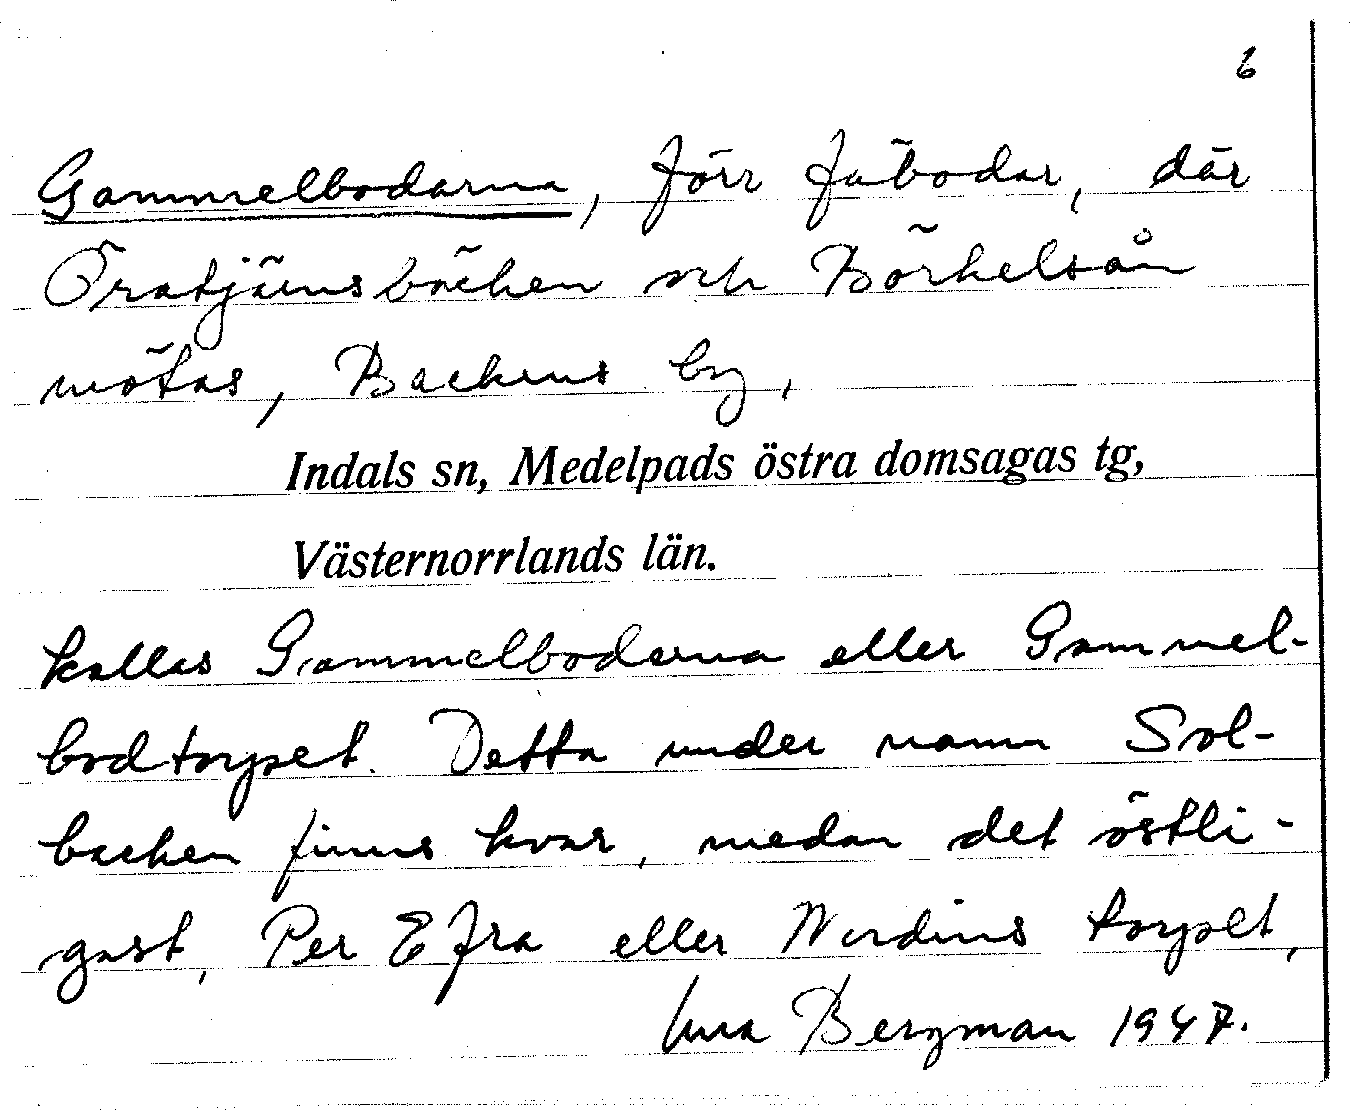 6
Gammelbodarna, förr fäbodar, där
Öratjärnsbäcken och Börkelsån
mötas, Backens by,
Indals sn, Medelpads östra domsagas tg,
Västernorrlands län.
kallas Gammelbodarna eller Gammel-
bodtorpet. Detta under namn Sol-
backen finns kvar, medan det östli-
gast, Per Efra eller Nordins torpet,
Bergman 1947.